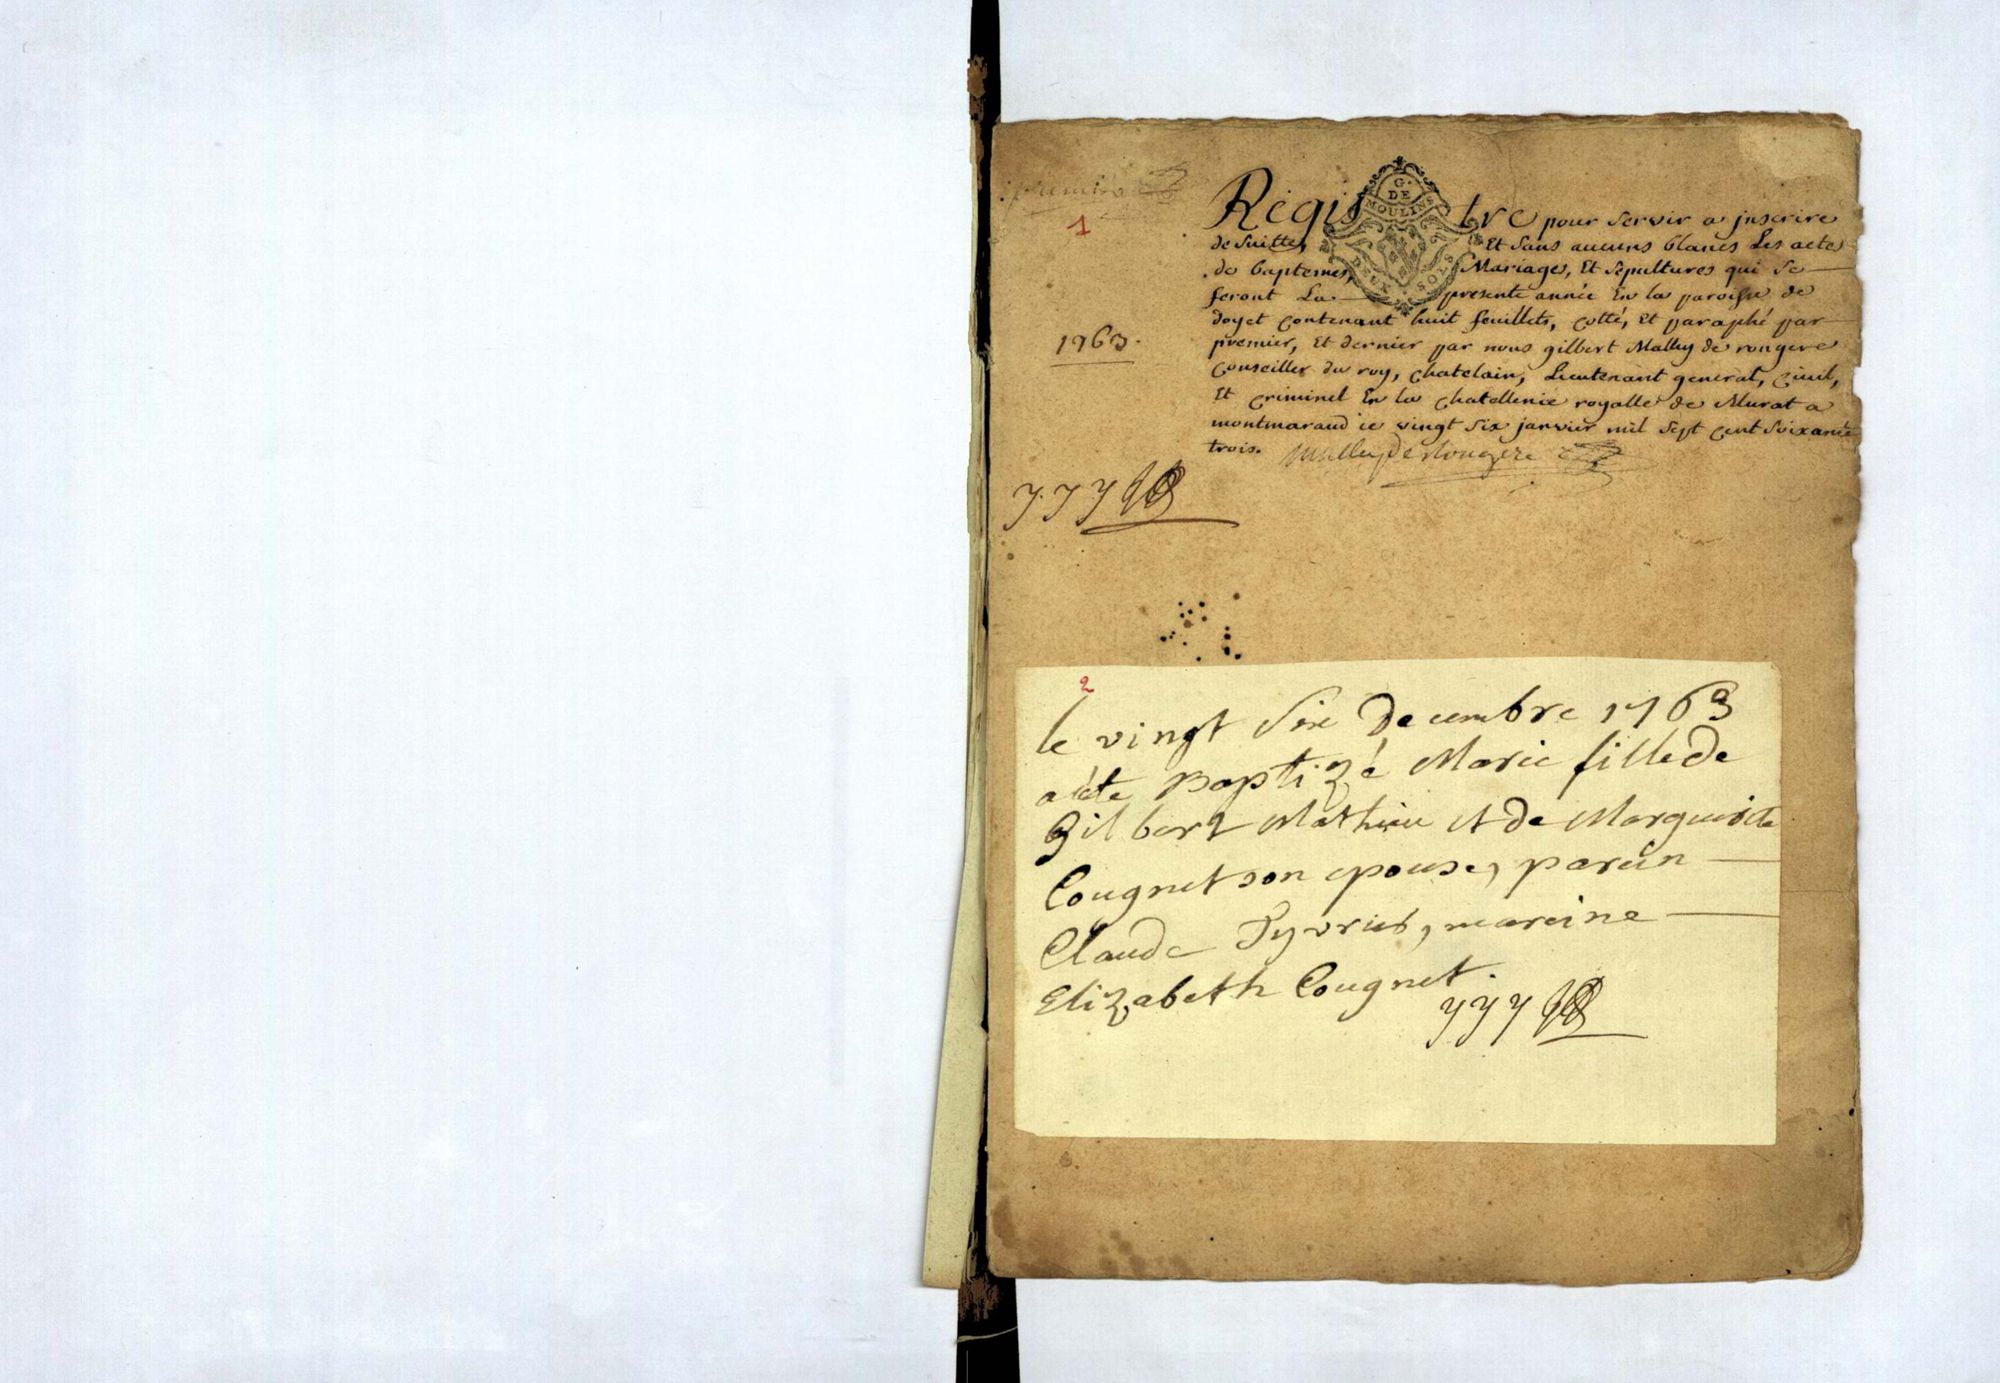 premier
1
G. DE
MOULINS
DEUX SOLS
Regis tre pour servir a jnscrire
de suitte, Et sans aucuns blancs Les actes
de baptemes, Mariages, Et sepultures qui se
feront La presente année En la paroisse de
doyet contenant huit feuillets, cotté, et paraphé par
premier, et dernier par nous gilbert Malley de rongere
Conseiller du roy, chatelain, Lieutenant general, civil,
Et criminel En la chatellenie royalle de Murat a
montmaraud ce vingt six janvier mil sept cent soixante
trois.
1763.
2
le vingt six decembre 1763
a été Baptizé Marie fille de
Gilbert Mathieu et de Marguirite
Cougnet son epouse, parein
Claude , mareine
Elizabeth Cougnet.